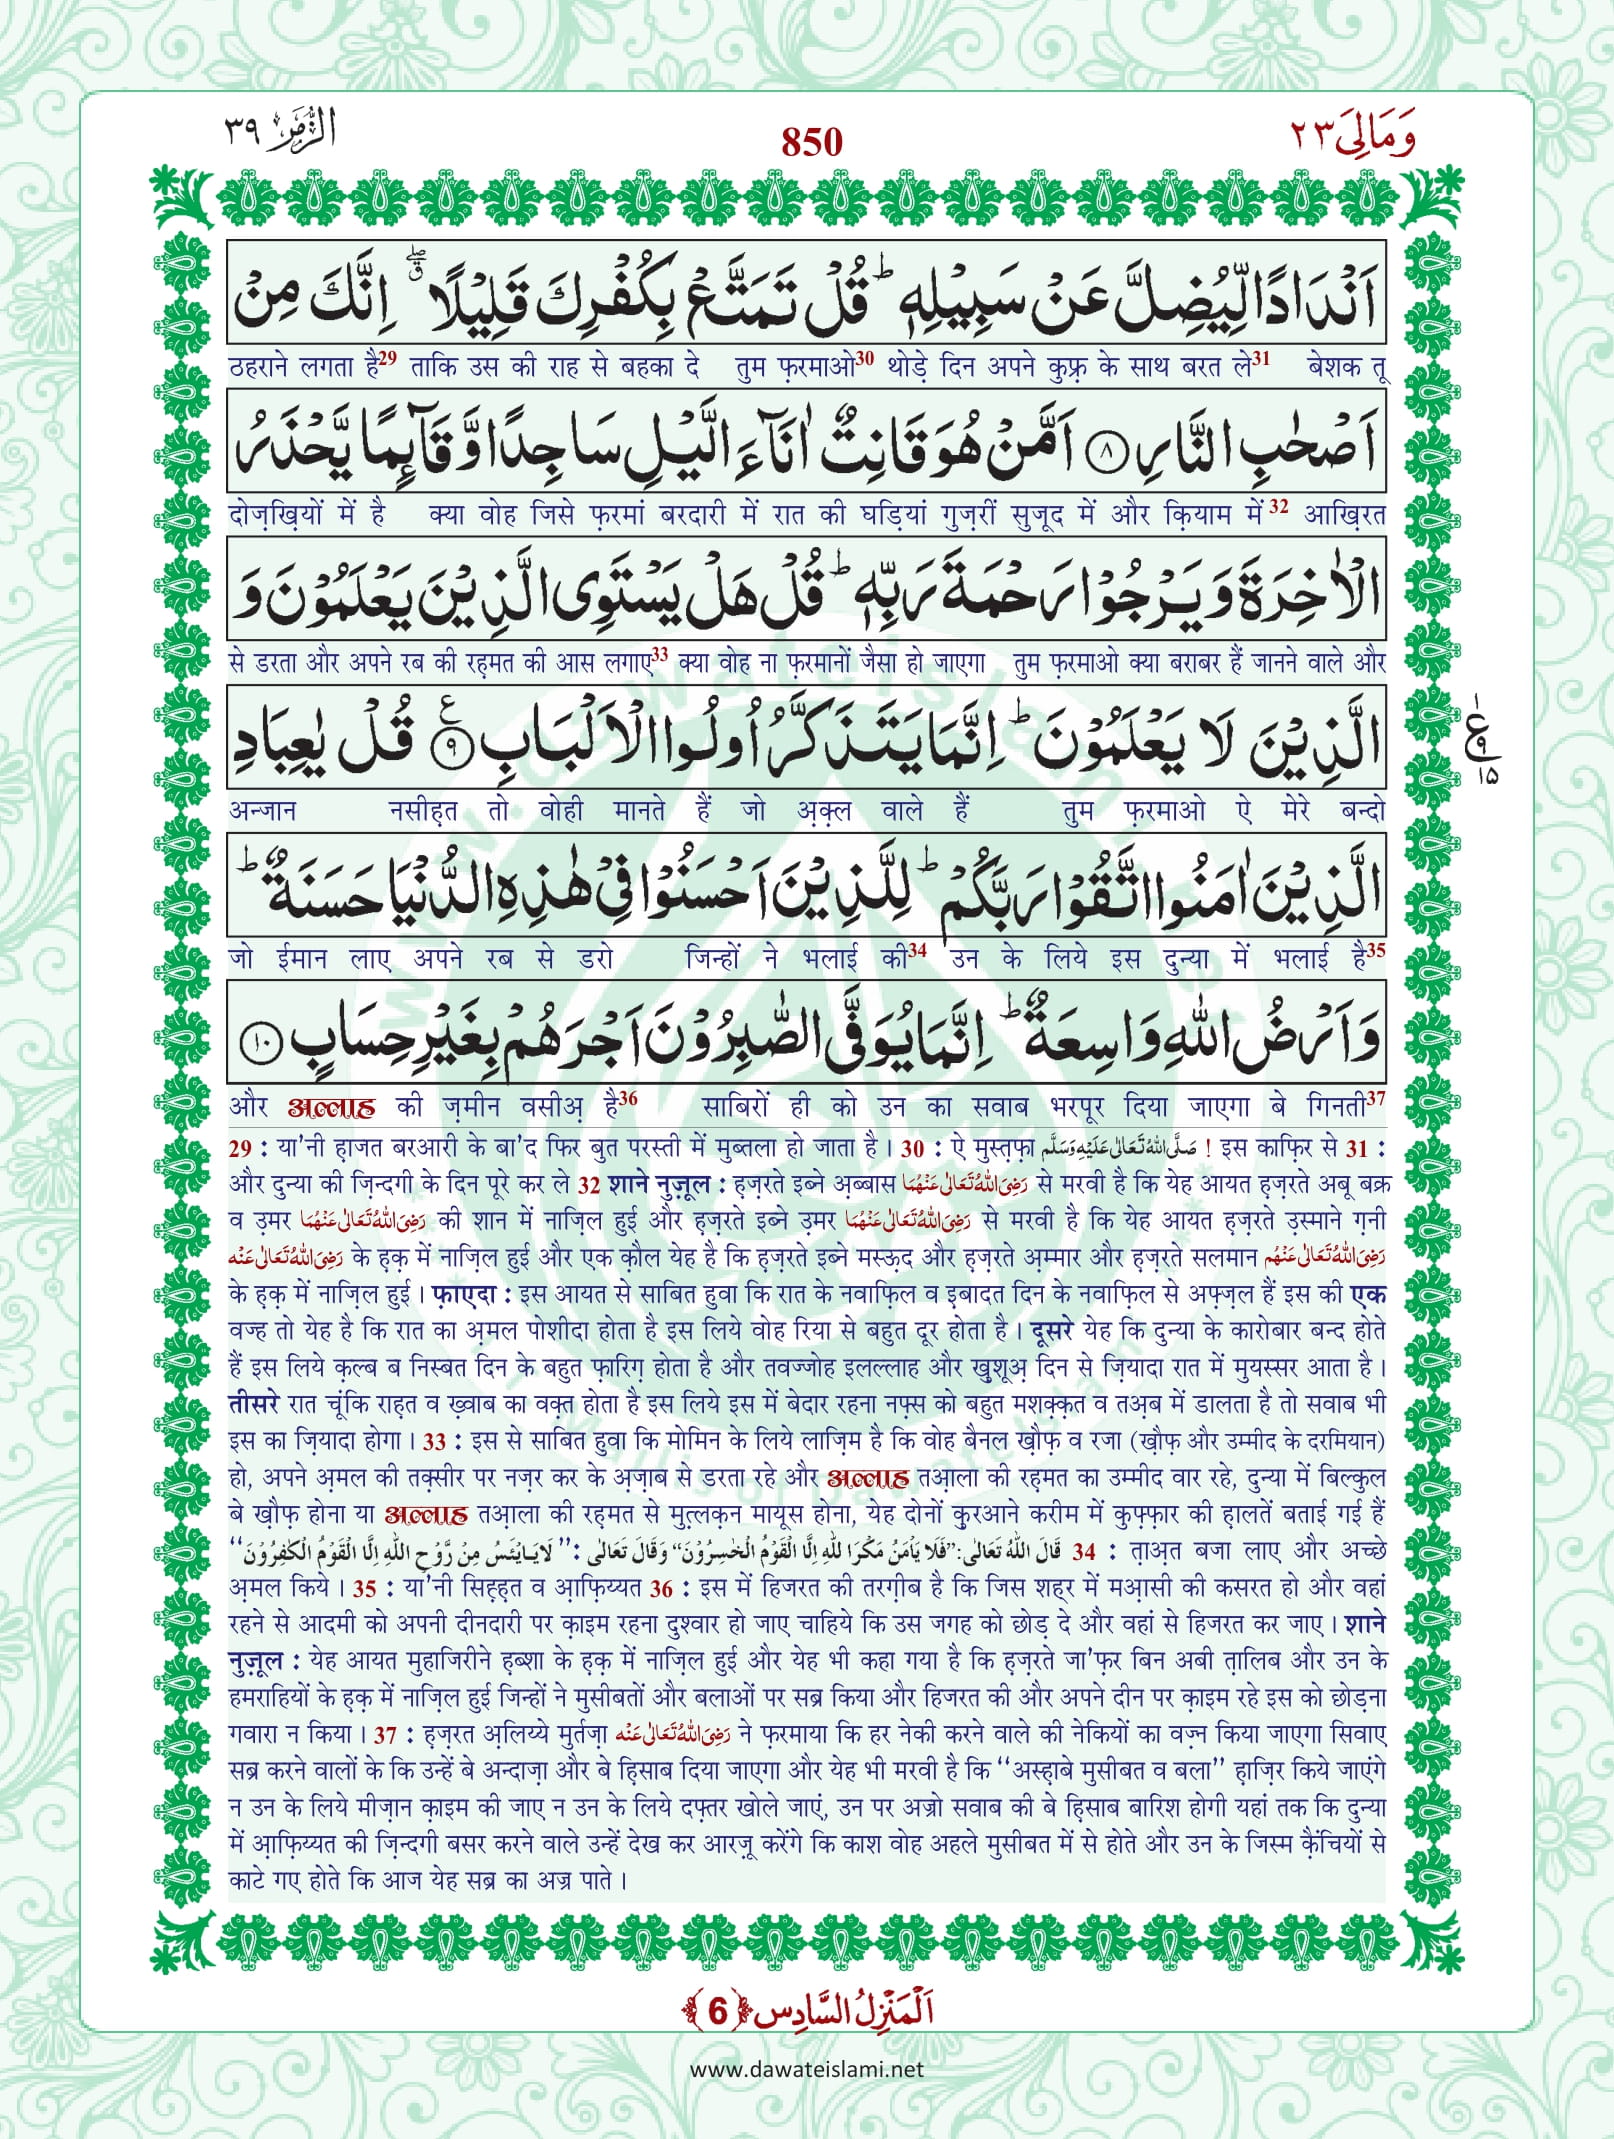 وَمَالِیَ ٢٣
850
الزُّمَر ٣٩
اَنْدَادًا لِّیُضِلَّ عَنْ سَبِیْلِهٖ ؕ قُلْ تَمَتَّعْ بِكُفْرِكَ قَلِیْلًا ۖۗ اِنَّكَ مِنْ
ठहराने लगता है29 ताकि उस की राह से बहका दे तुम फ़रमाओ30 थोड़े दिन अपने कुफ़्र के साथ बरत ले31 बेशक तू
اَصْحٰبِ النَّارِ ﴿٨﴾ اَمَّنْ هُوَ قَانِتٌ اٰنَآءَ الَّیْلِ سَاجِدًا وَّ قَآىِٕمًا یَّحْذَرُ
दोज़ख़ियों में है क्या वोह जिसे फ़रमां बरदारी में रात की घड़ियां गुज़रीं सुजूद में और क़ियाम में32 आख़िरत
الْاٰخِرَةَ وَ یَرْجُوْا رَحْمَةَ رَبِّهٖ ؕ قُلْ هَلْ یَسْتَوِی الَّذِیْنَ یَعْلَمُوْنَ وَ
से डरता और अपने रब की रह़मत की आस लगाए33 क्या वोह ना फ़रमानों जैसा हो जाएगा तुम फ़रमाओ क्या बराबर हैं जानने वाले और
الَّذِیْنَ لَا یَعْلَمُوْنَ ؕ اِنَّمَا یَتَذَكَّرُ اُولُوا الْاَلْبَابِ ﴿٩﴾ ع قُلْ یٰعِبَادِ
ع ٩ ١٥
अन्जान नसीह़त तो वोही मानते हैं जो अ़क़्ल वाले हैं तुम फ़रमाओ ऐ मेरे बन्दो
الَّذِیْنَ اٰمَنُوا اتَّقُوْا رَبَّكُمْ ؕ لِلَّذِیْنَ اَحْسَنُوْا فِیْ هٰذِهِ الدُّنْیَا حَسَنَةٌ ؕ
जो ईमान लाए अपने रब से डरो जिन्हों ने भलाई की34 उन के लिये इस दुन्या में भलाई है35
وَ اَرْضُ اللّٰهِ وَاسِعَةٌ ؕ اِنَّمَا یُوَفَّی الصّٰبِرُوْنَ اَجْرَهُمْ بِغَیْرِ حِسَابٍ ﴿١٠﴾
और अल्लाह की ज़मीन वसीअ़ है36 साबिरों ही को उन का सवाब भरपूर दिया जाएगा बे गिनती37
29 : या'नी ह़ाजत बरआरी के बा'द फिर बुत परस्ती में मुब्तला हो जाता है। 30 : ऐ मुस्त़फ़ा صَلَّی اللّٰهُ تَعَالٰی عَلَیْهِ وَسَلَّم ! इस काफ़िर से 31 :
और दुन्या की ज़िन्दगी के दिन पूरे कर ले 32 शाने नुज़ूल : ह़ज़रते इब्ने अ़ब्बास رَضِیَ اللّٰهُ تَعَالٰی عَنْهُمَا से मरवी है कि येह आयत ह़ज़रते अबू बक्र
व उ़मर رَضِیَ اللّٰهُ تَعَالٰی عَنْهُمَا की शान में नाज़िल हुई और ह़ज़रते इब्ने उ़मर رَضِیَ اللّٰهُ تَعَالٰی عَنْهُمَا से मरवी है कि येह आयत ह़ज़रते उ़स्माने ग़नी
رَضِیَ اللّٰهُ تَعَالٰی عَنْه के ह़क़ में नाज़िल हुई और एक क़ौल येह है कि ह़ज़रते इब्ने मस्ऊ़द और ह़ज़रते अ़म्मार और ह़ज़रते सलमान رَضِیَ اللّٰهُ تَعَالٰی عَنْهُم
के ह़क़ में नाज़िल हुई। फ़ाएदा : इस आयत से साबित हुवा कि रात के नवाफ़िल व इ़बादत दिन के नवाफ़िल से अफ़्ज़ल हैं इस की एक
वज्ह तो येह है कि रात का अ़मल पोशीदा होता है इस लिये वोह रिया से बहुत दूर होता है। दूसरे येह कि दुन्या के कारोबार बन्द होते
हैं इस लिये क़ल्ब ब निस्बत दिन के बहुत फ़ारिग़ होता है और तवज्जोह इलल्लाह और ख़ुशूअ़ दिन से ज़ियादा रात में मुयस्सर आता है।
तीसरे रात चूंकि राह़त व ख़्वाब का वक़्त होता है इस लिये इस में बेदार रहना नफ़्स को बहुत मशक़्क़त व तअ़ब में डालता है तो सवाब भी
इस का ज़ियादा होगा। 33 : इस से साबित हुवा कि मोमिन के लिये लाज़िम है कि वोह बैनल ख़ौफ़ व रजा (ख़ौफ़ और उम्मीद के दरमियान)
हो, अपने अ़मल की तक़्सीर पर नज़र कर के अ़ज़ाब से डरता रहे और अल्लाह तआ़ला की रह़मत का उम्मीद वार रहे, दुन्या में बिल्कुल
बे ख़ौफ़ होना या अल्लाह तआ़ला की रह़मत से मुत़्लक़न मायूस होना, येह दोनों क़ुरआने करीम में कुफ़्फ़ार की ह़ालतें बताई गई हैं
قَالَ اللّٰهُ تَعَالٰی: ”فَلَا یَاْمَنُ مَكْرَ اللّٰهِ اِلَّا الْقَوْمُ الْخٰسِرُوْنَ“ وَقَالَ تَعَالٰی : ”لَا یَایْـَٔسُ مِنْ رَّوْحِ اللّٰهِ اِلَّا الْقَوْمُ الْكٰفِرُوْنَ“ 34 : त़ाअ़त बजा लाए और अच्छे
अ़मल किये। 35 : या'नी सिह़्ह़त व आ़फ़िय्यत 36 : इस में हिजरत की तरग़ीब है कि जिस शह्‌र में मआ़सी की कसरत हो और वहां
रहने से आदमी को अपनी दीनदारी पर क़ाइम रहना दुश्वार हो जाए चाहिये कि उस जगह को छोड़ दे और वहां से हिजरत कर जाए। शाने
नुज़ूल : येह आयत मुहाजिरीने ह़ब्शा के ह़क़ में नाज़िल हुई और येह भी कहा गया है कि ह़ज़रते जा'फ़र बिन अबी त़ालिब और उन के
हमराहियों के ह़क़ में नाज़िल हुई जिन्हों ने मुसीबतों और बलाओं पर सब्र किया और हिजरत की और अपने दीन पर क़ाइम रहे इस को छोड़ना
गवारा न किया। 37 : ह़ज़रत अ़लिय्ये मुर्तज़ा رَضِیَ اللّٰهُ تَعَالٰی عَنْه ने फ़रमाया कि हर नेकी करने वाले की नेकियों का वज़्न किया जाएगा सिवाए
सब्र करने वालों के कि उन्हें बे अन्दाज़ा और बे ह़िसाब दिया जाएगा और येह भी मरवी है कि ‘‘अस्ह़ाबे मुसीबत व बला’’ ह़ाज़िर किये जाएंगे
न उन के लिये मीज़ान क़ाइम की जाए न उन के लिये दफ़्तर खोले जाएं, उन पर अज्रो सवाब की बे ह़िसाब बारिश होगी यहां तक कि दुन्या
में आ़फ़िय्यत की ज़िन्दगी बसर करने वाले उन्हें देख कर आरज़ू करेंगे कि काश वोह अहले मुसीबत में से होते और उन के जिस्म क़ैंचियों से
काटे गए होते कि आज येह सब्र का अज्र पाते।
اَلْمَنْزِلُ السَّادِس ﴿6﴾
www.dawateislami.net